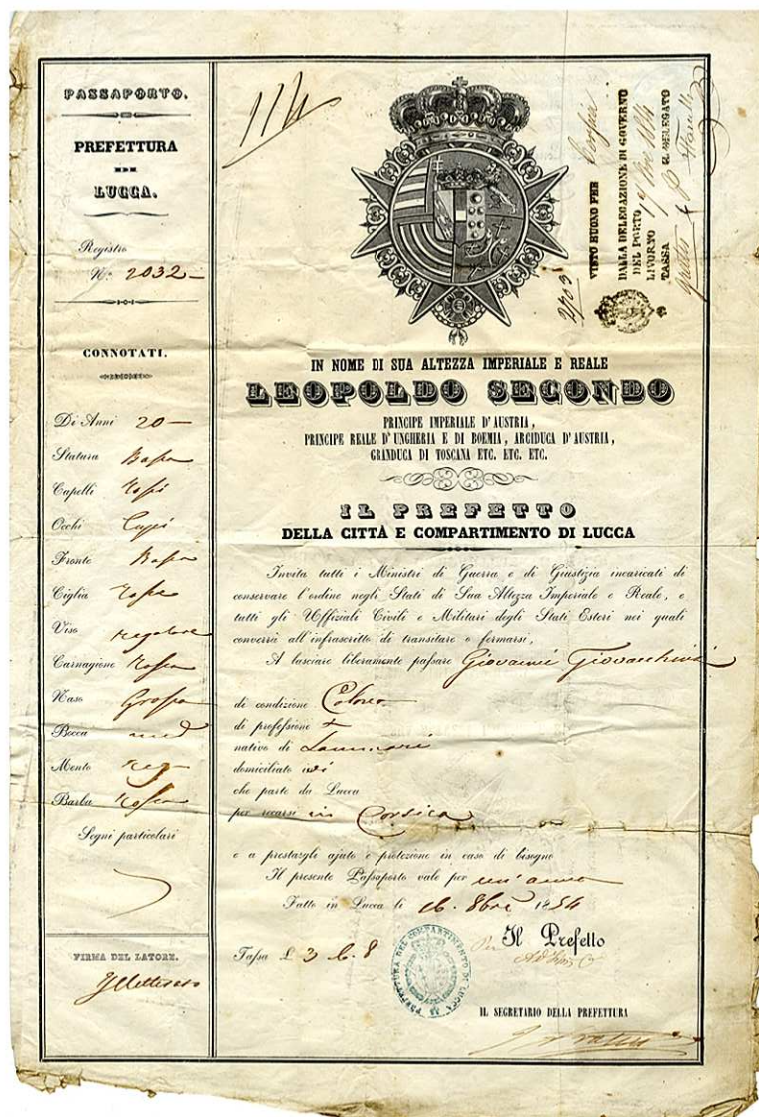 PASSAPORTO.
PREFETTURA
DI
LUCCA.
Registro
N.º 2032
CONNOTATI.
Di Anni 20
Statura Bassa
Capelli Rossi
Occhi Cupi
Fronte Bassa
Ciglia Rosse
Viso regolare
Carnagione Rossa
Naso Grosso
Bocca med
Mento reg
Barba Rossa
Segni particolari
FIRMA DEL LATORE.
Illetterato
114
VISTO BUONO PER Corsica
DALLA DELEGAZIONE DI GOVERNO
DEL PORTO
LIVORNO 19 8bre 1854
TASSA gratis IL R. DELEGATO
2703
IN NOME DI SUA ALTEZZA IMPERIALE E REALE
LEOPOLDO SECONDO
PRINCIPE IMPERIALE D'AUSTRIA,
PRINCIPE REALE D'UNGHERIA E DI BOEMIA, ARCIDUCA D'AUSTRIA,
GRANDUCA DI TOSCANA ETC. ETC. ETC.
IL PREFETTO
DELLA CITTÀ E COMPARTIMENTO DI LUCCA
Invita tutti i Ministri di Guerra e di Giustizia incaricati di
conservare l'ordine negli Stati di Sua Altezza Imperiale e Reale, e
tutti gli Uffiziali Civili e Militari degli Stati Esteri nei quali
converrà all'infrascritto di transitare o fermarsi,
A lasciare liberamente passare Giovanni Giovacchini
di condizione Colono
di professione
nativo di Lammari
domiciliato ivi
che parte da Lucca
per recarsi in Corsica
e a prestargli ajuto e protezione in caso di bisogno
Il presente Passaporto vale per un'anno
Fatto in Lucca li 16. 8bre 1854
Tassa L 3 6. 8
PREFETTURA DEL COMPARTIMENTO DI LUCCA
Per Il Prefetto
IL SEGRETARIO DELLA PREFETTURA